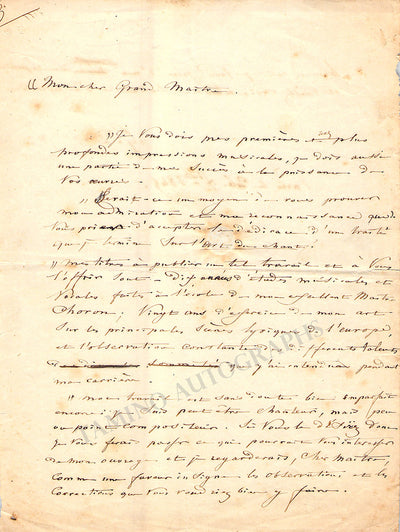 "Mon cher Grand Maitre.
"Je Vous dois mes premières et mes plus
profondes impressions musicales, je dois aussi
une partie de mes succès à la puissance de
vos œuvres.
"Serait-ce un moyen de vous prouver
mon admiration et ma reconnaissance que de
vous prier d'accepter la dédicace d'un traité
que je termine sur l'art du chant?
"mes titres à publier un tel travail et à Vous
l'offrir sont - dix années d'études musicales et
vocales faites à l'école de mon excellent Maitre
Choron; Vingt ans d'exercice de mon art
sur les principales scènes lyriques de l'europe,
et l'observation constante de différents talents
que j'ai entendus pendant
ma carrière.
"mon travail est sans doute bien imparfait
encore; je suis peut être chanteur, mais peu
ou point compositeur. Si Vous le désirez donc
je vous ferais passer ce qui pourrait vous intéresser
de mon ouvrage et je regarderais, cher maitre,
comme une faveur insigne les observations et les
corrections que vous voudriez bien y faire.
TAMINO AUTOGRAPHS